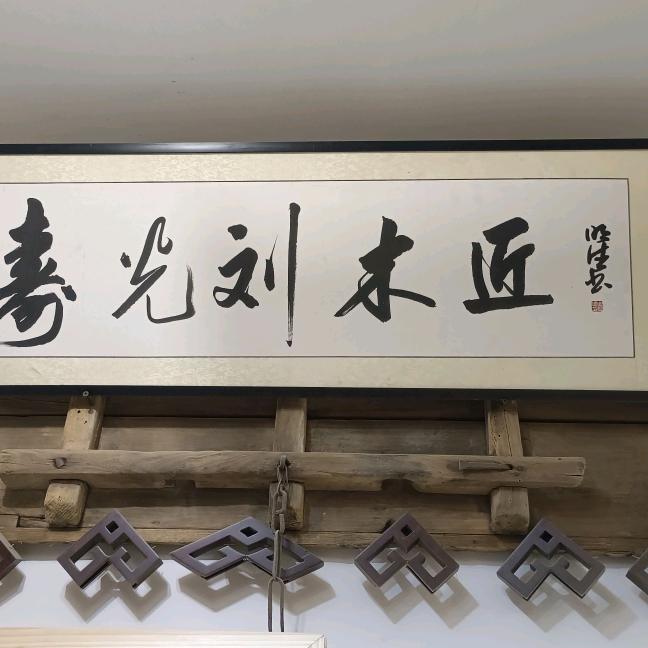 寿光刘木匠